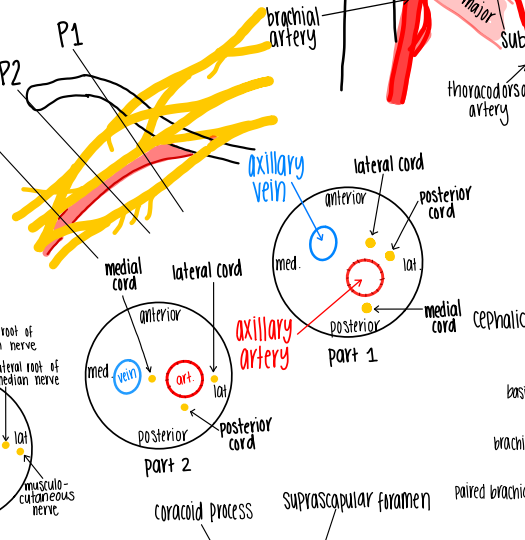 P1
P2
brachial
artery
major
sub
thoracodorsa
artery
axillary
vein
lateral cord
anterior
posterior
cord
med.
lat.
medial
cord
posterior
part 1
axillary
artery
medial
cord
lateral cord
anterior
med.
vein
art.
lat
posterior
posterior
cord
part 2
cephalic
root of
nerve
ateral root of
median nerve
lat
musculo-
cutaneous
nerve
bas
brachi
paired brachi
coracoid process
suprascapular foramen